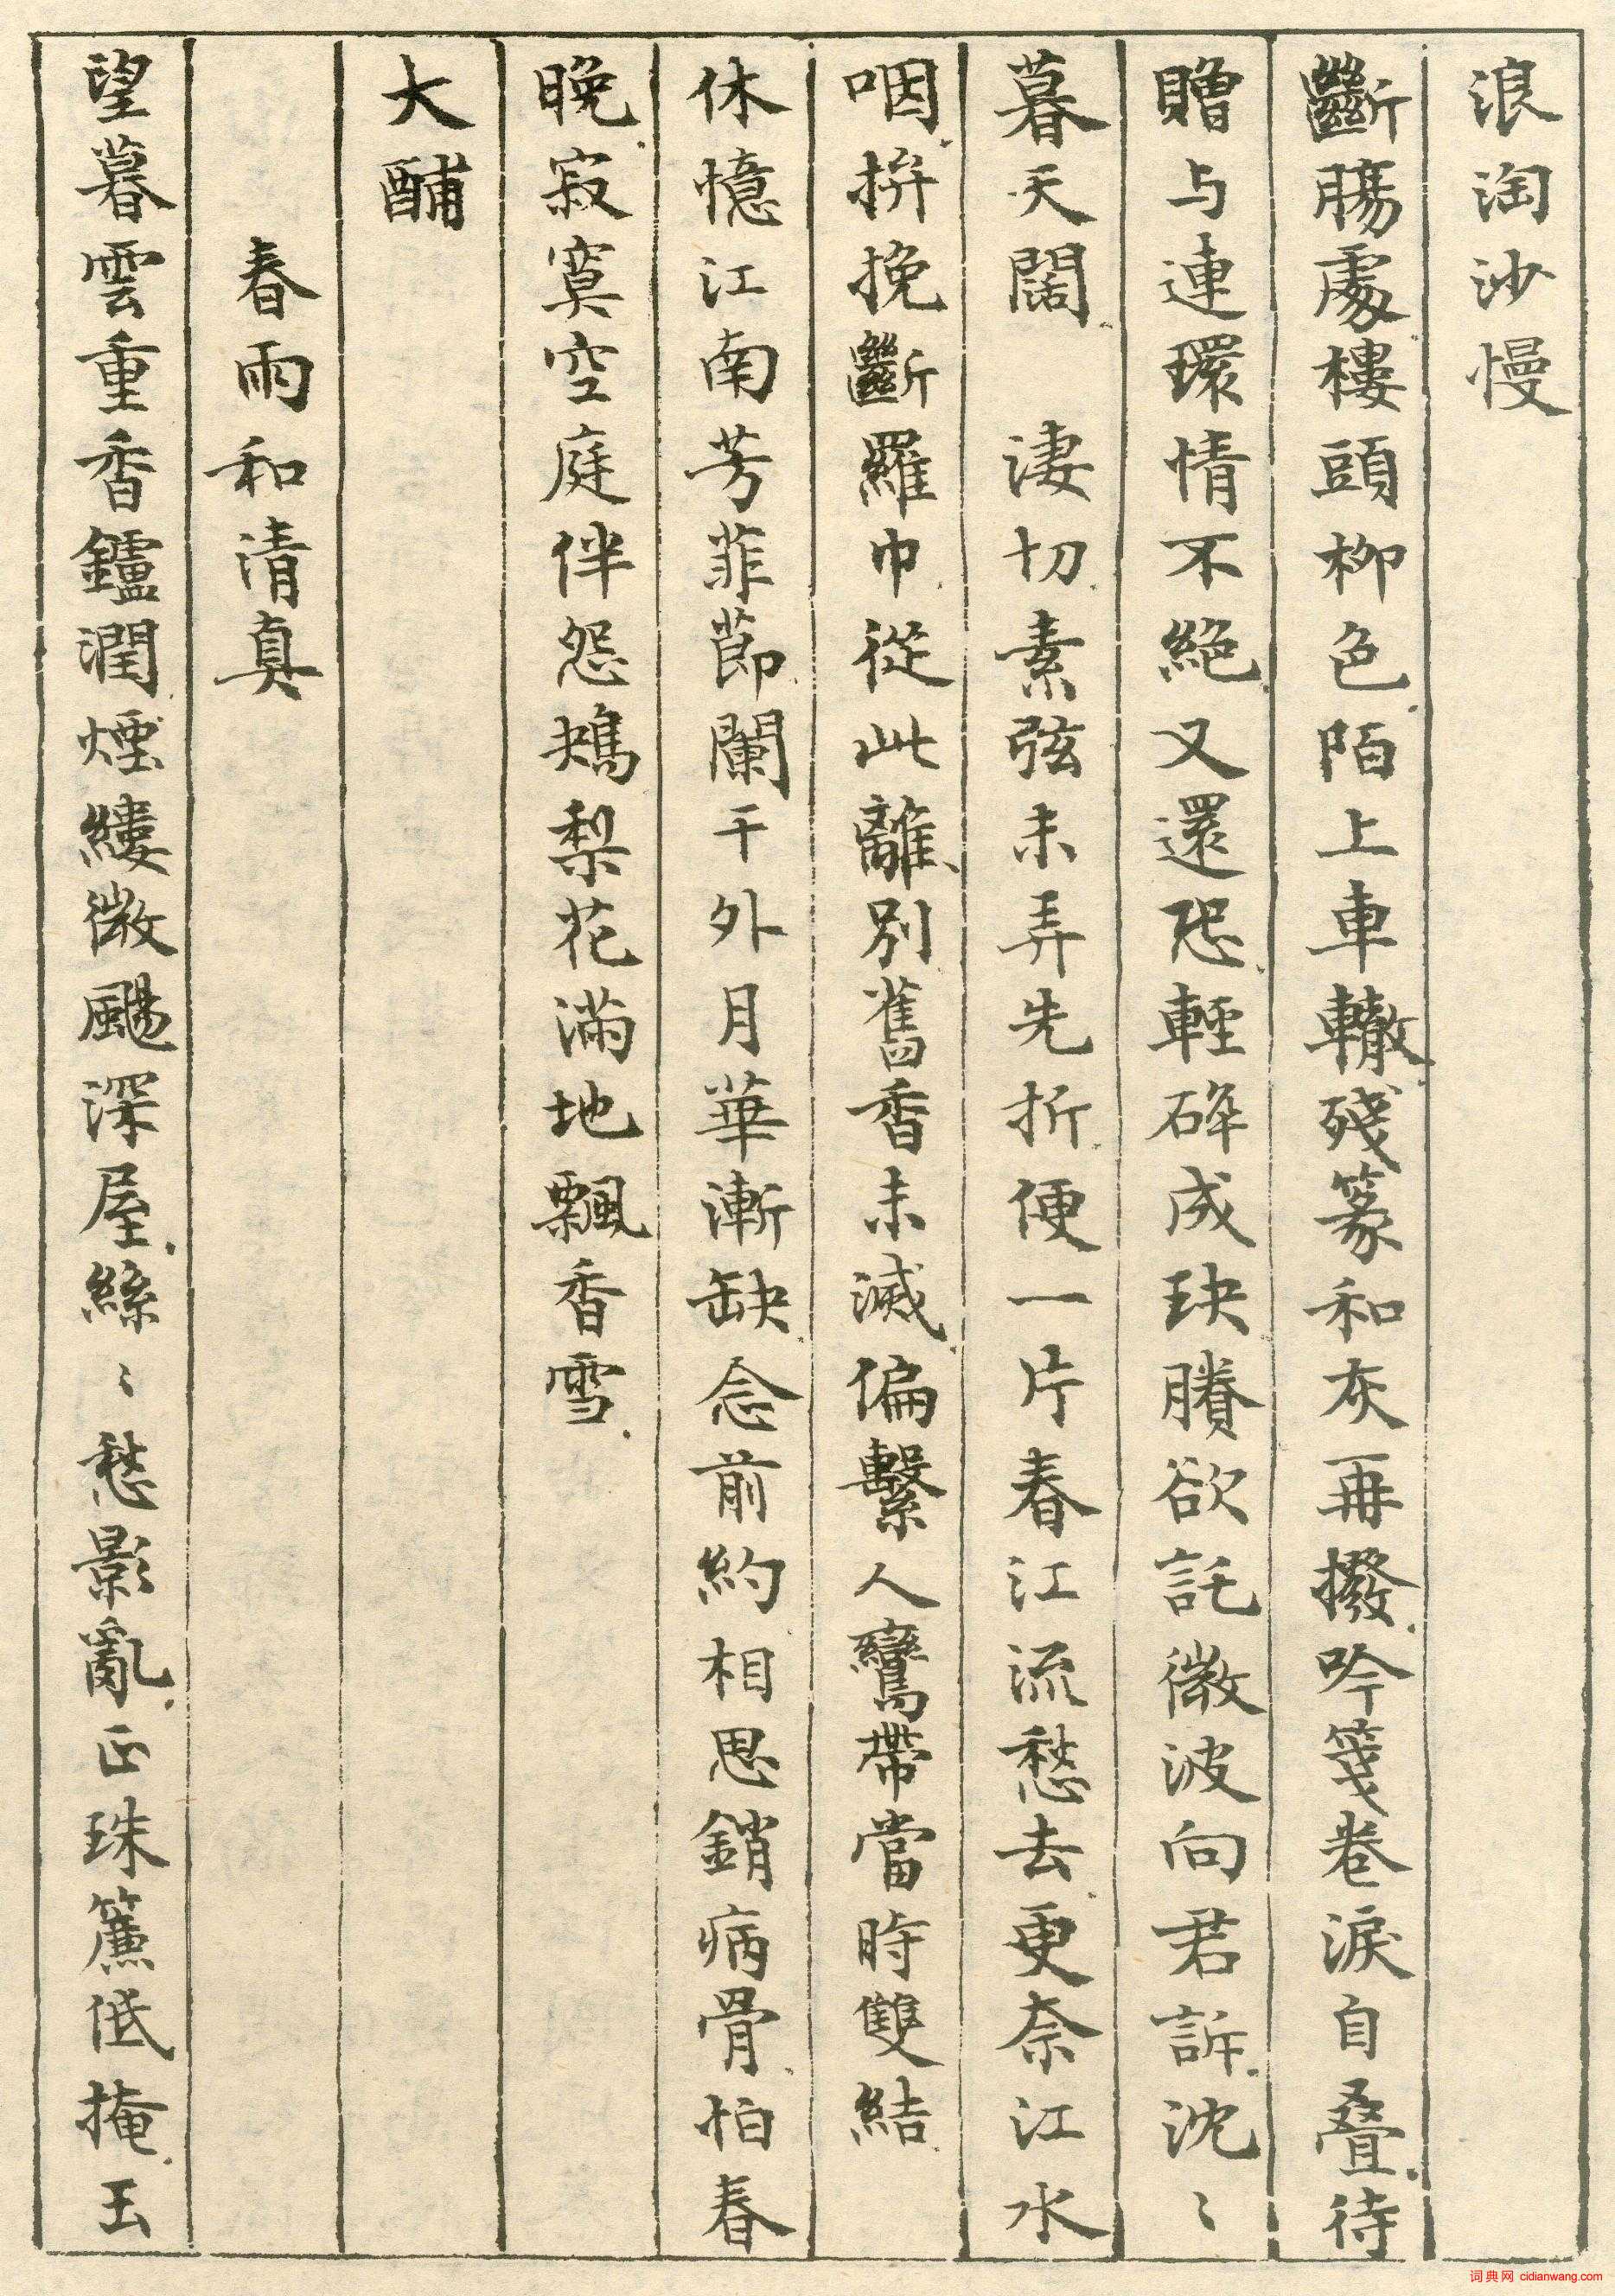 浪淘沙慢
斷腸處樓頭柳色陌上車轍殘篆和灰再撥吟箋卷淚自疊待
贈与連環情不絕又還恐輕碎成玦賸欲託微波向君訴沈〻
暮天闊　淒切素弦未弄先折便一片春江流愁去更奈江水
咽拚挽斷羅巾從此離別舊香未滅偏繫人鸞帶當時雙結
休憶江南芳菲節闌干外月華漸缺念前約相思銷病骨怕春
晚寂寞空庭伴怨鴂梨花滿地飄香雪
大酺
春雨和清真
望暮雲重香鑪潤煙縷微颺深屋絲〻愁影亂正珠簾低掩玉
词典网 cidianwang.com